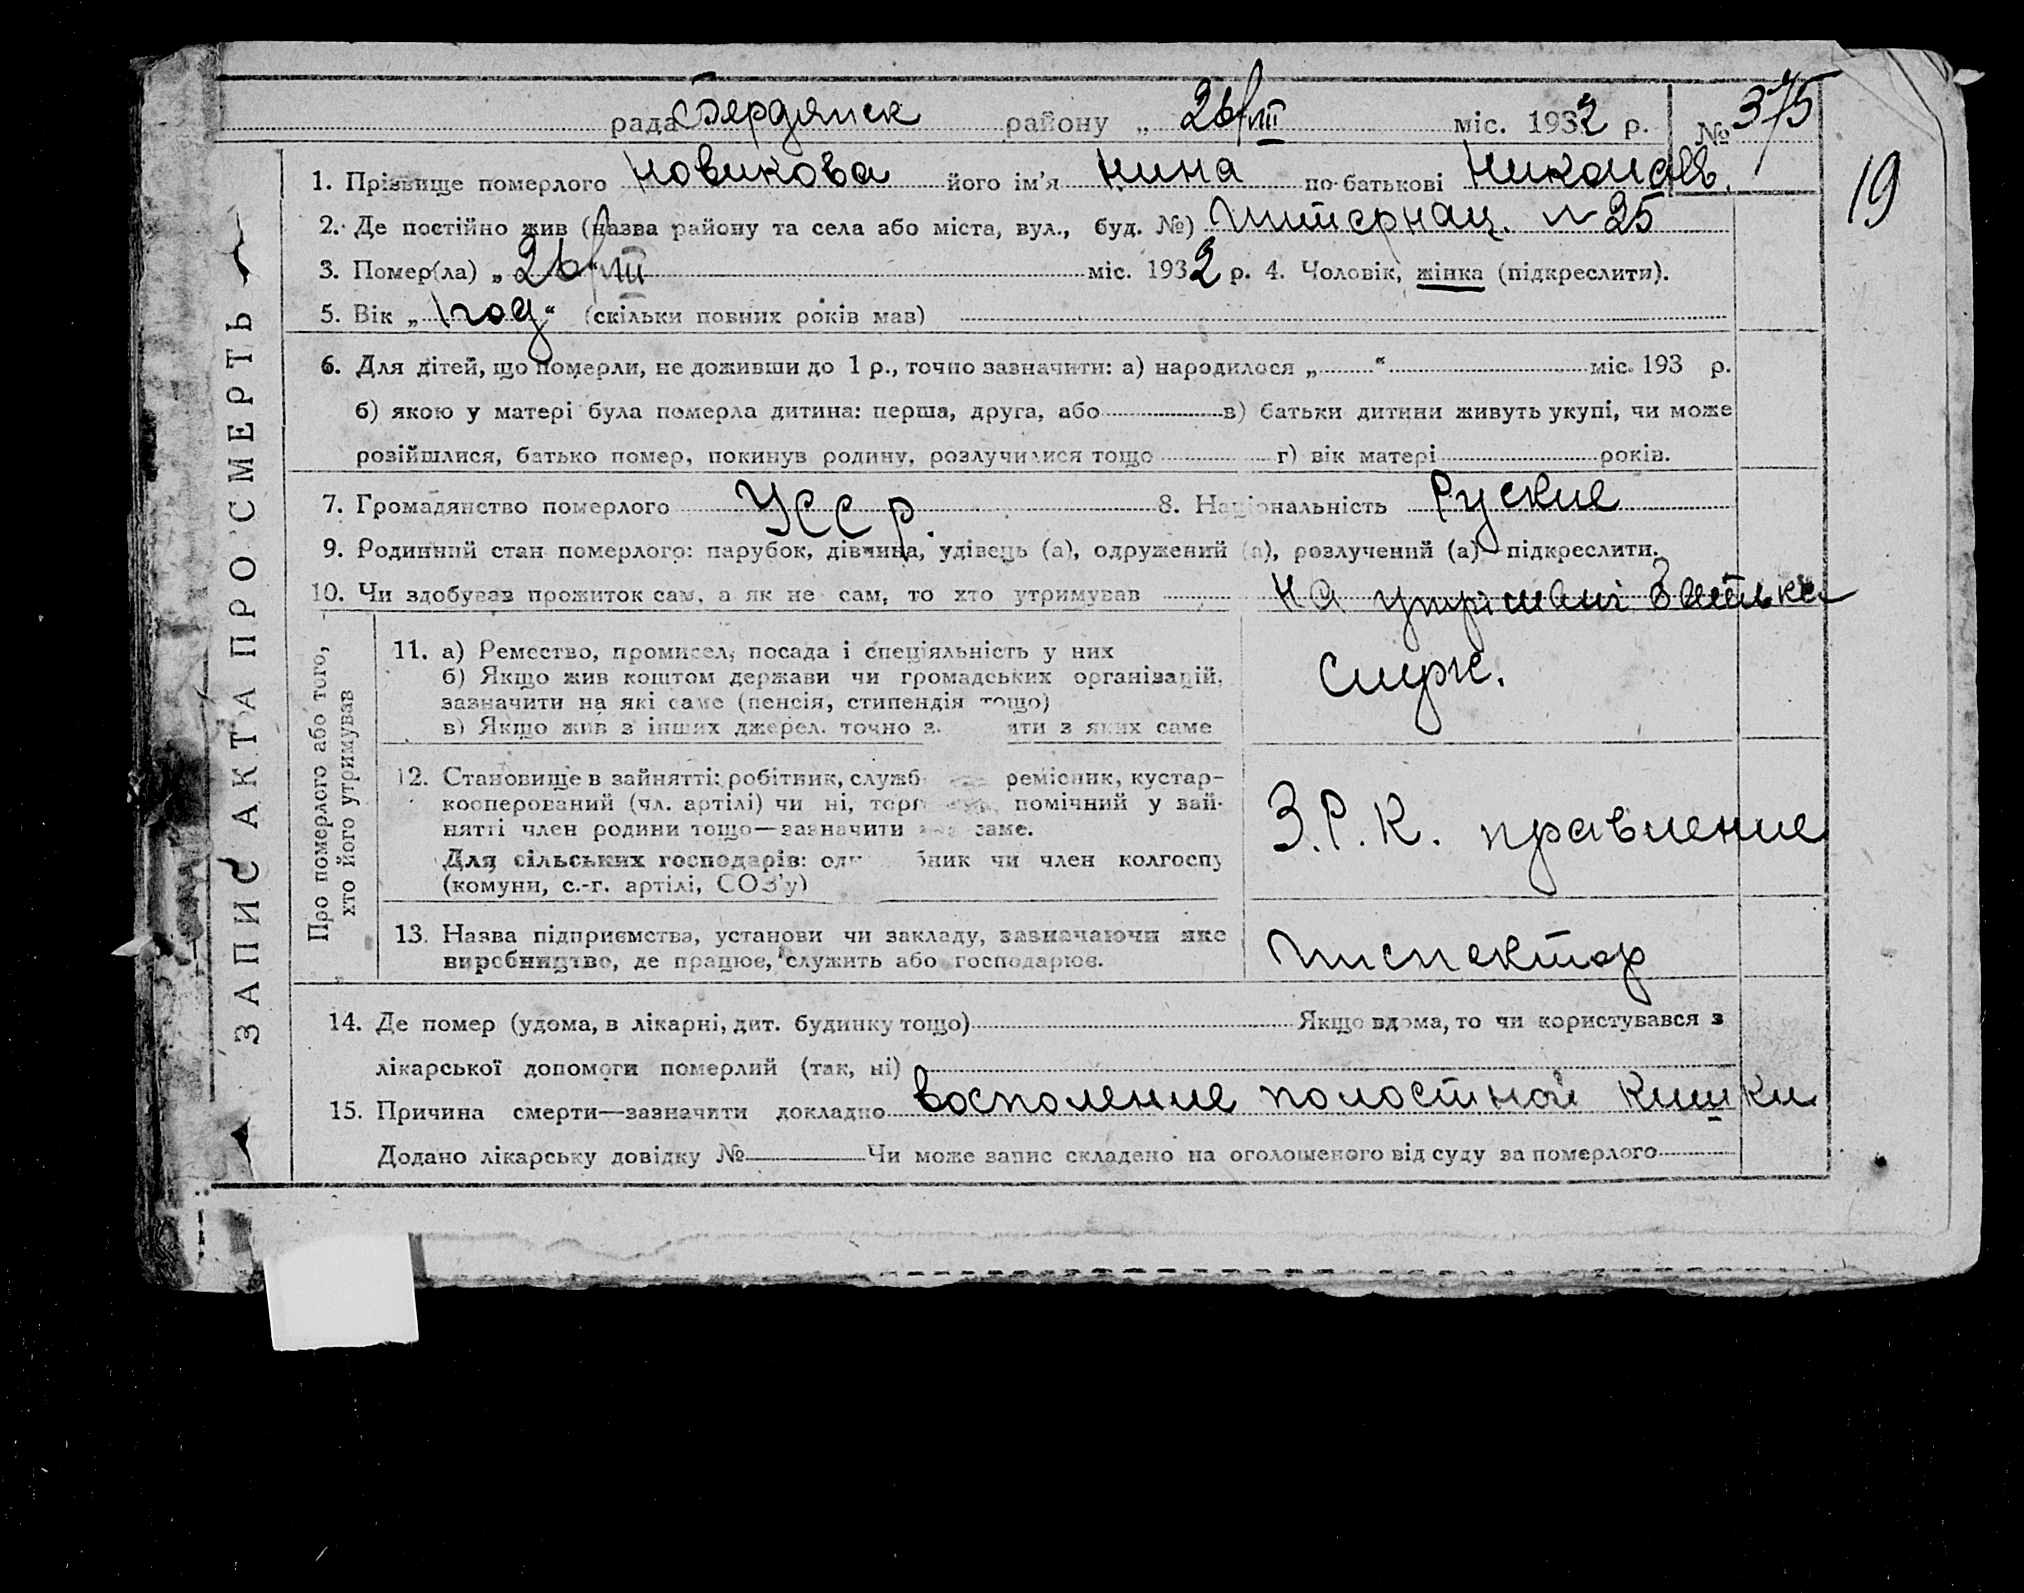 рада Бердянск району „ 26/III міс. 1932 р. № 375
19
1. Прізвище померлого Новикова його ім'я Нина по-батькові Николаевв.
2. Де постійно жив (назва району та села або міста, вул., буд. №) Интернац. № 25
3. Помер(ла) „ 26/III міс. 1932 р. 4. Чоловік, жінка (підкреслити).
5. Вік „ 1 год “ (скільки повних років мав)
6. Для дітей, що померли, не доживши до 1 р., точно зазначити: а) народилося „ “ міс. 193 р.
б) якою у матері була померла дитина: перша, друга, або в) батьки дитини живуть укупі, чи може
розійшлися, батько помер, покинув родину, розлучилися тощо г) вік матері років.
7. Громадянство померлого УССР. 8. Національність Руские
9. Родинний стан померлого: парубок, дівчина, удівець (а), одружений (а), розлучений (а)—підкреслити.
10. Чи здобував прожиток сам, а як не сам, то хто утримував На утрімані батька
ЗАПИС АКТА ПРО СМЕРТЬ
Про померлого або того,
хто його утримував
11. а) Ремество, промисел, посада і спеціяльність у них
б) Якщо жив коштом держави чи громадських організацій,
зазначити на які саме (пенсія, стипендія тощо)
в) Якщо жив з інших джерел, точно з ити з яких саме
Служ.
12. Становище в зайнятті: робітник, служб ремісник, кустар-
кооперований (чл. артілі) чи ні, торг помічний у зай-
нятті член родини тощо—зазначити саме.
Для сільських господарів: од бник чи член колгоспу
(комуни, с.-г. артілі, СОЗ'у)
З.Р.К. правление
13. Назва підприємства, установи чи закладу, зазначаючи яке
виробництво, де працює, служить або господарює.
Инспектор
14. Де помер (удома, в лікарні, дит. будинку тощо) Якщо вдома, то чи користувався з
лікарської допомоги померлий (так, ні)
15. Причина смерти—зазначити докладно восполение полостной кишки
Додано лікарську довідку № Чи може запис складено на оголошеного від суду за померлого